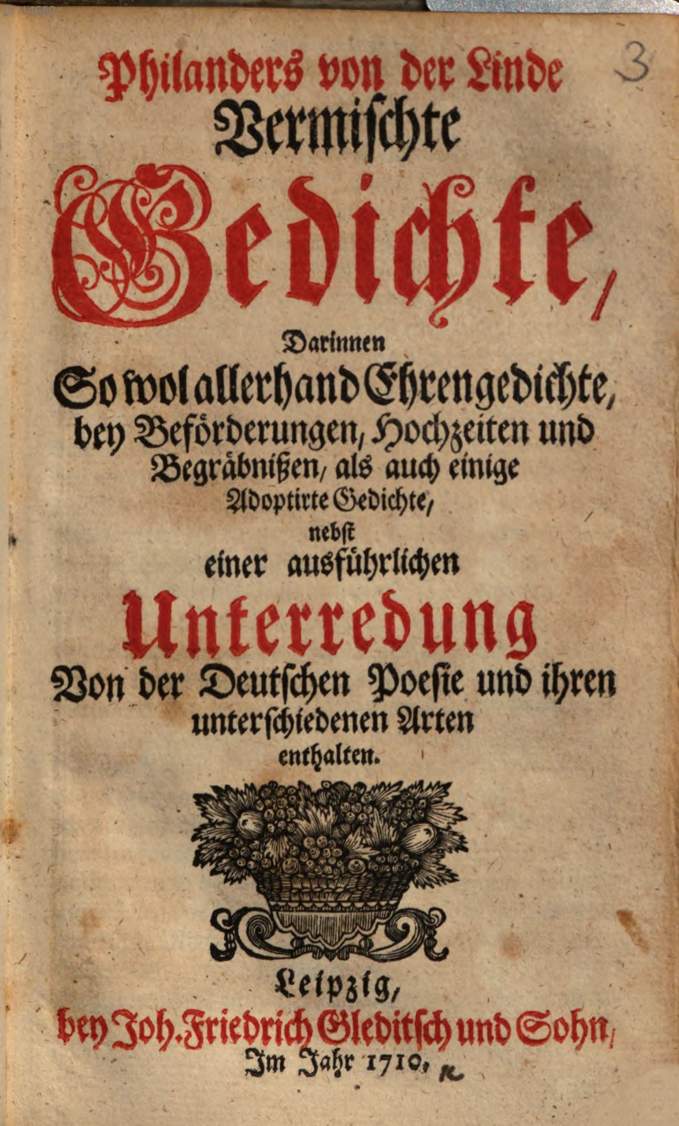 3
Philanders von der Linde
Vermischte
Gedichte,
Darinnen
So wol allerhand Ehrengedichte,
bey Beförderungen, Hochzeiten und
Begräbnißen/ als auch einige
Adoptirte Gedichte/
nebst
einer ausführlichen
Unterredung
Von der Deutschen Poesie und ihren
unterschiedenen Arten
enthalten.
Leipzig,
bey Joh. Friedrich Gleditsch und Sohn,
Im Jahr 1710.